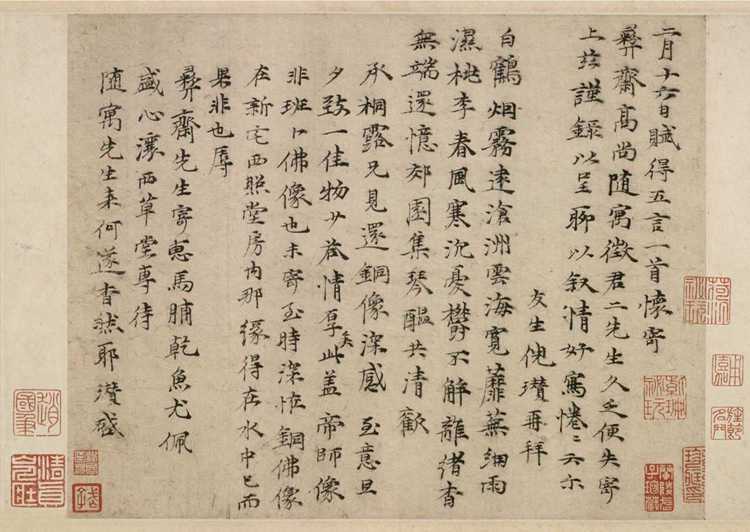 二月十六日賦得五言一首懷寄
彞齋高尚隨寓徵君二先生久乏便失寄
上玆謹錄以呈聊以叙情好寫惓〻云尔
友生倪瓚再拜
白鶴烟霧遠滄洲雲海寬蘼蕪細雨
濕桃李春風寒沉憂鬱不解離緒杳
無端還憶郊園集琴醞共清歡
承桐露兄見還銅像深感至意旦
夕致一佳物少荅情厚矣此蓋帝師像
非班卜佛像也未寄至時深恠銅佛像
在新宅西照堂房内那緣得在水中已而
果非也辱
彞齋先生寄惠馬脯乾魚尤佩
盛心瀼西草堂專待
隨寓先生来何遂杳然耶瓚啟